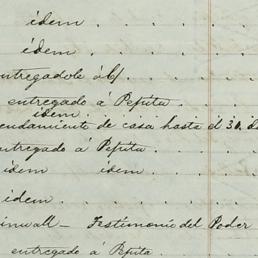 idem
idem
entregadole á
entregado á Pepita
idem
endamiento de casa hasta el 30 de
entregado á Pepita
idem idem
idem
inwall — Testimonio del Poder
entregado á Pepita